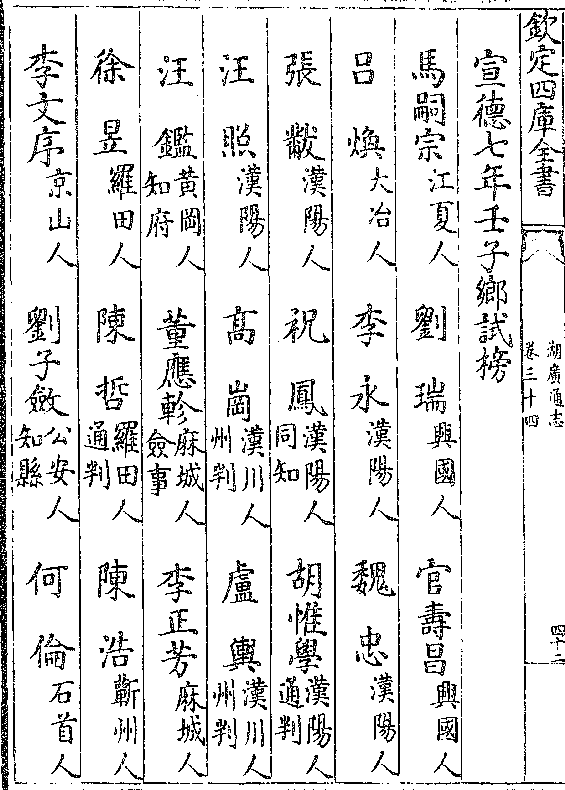 欽定四庫全書
湖廣通志
卷三十四
四十二
宣德七年壬子鄉試榜
馬嗣宗江夏人 劉瑞興國人 官壽昌興國人
呂煥大冶人 李永漢陽人 魏忠漢陽人
張黻漢陽人 祝鳳漢陽人同知 胡惟學漢陽人通判
汪照漢陽人 高崗漢川人州判 盧輿漢川人州判
汪鑑黃岡人知府 董應軫麻城人僉事 李正芳麻城人
徐昱羅田人 陳哲羅田人通判 陳浩蘄州人
李文序京山人 劉子斂公安人知縣 何倫石首人